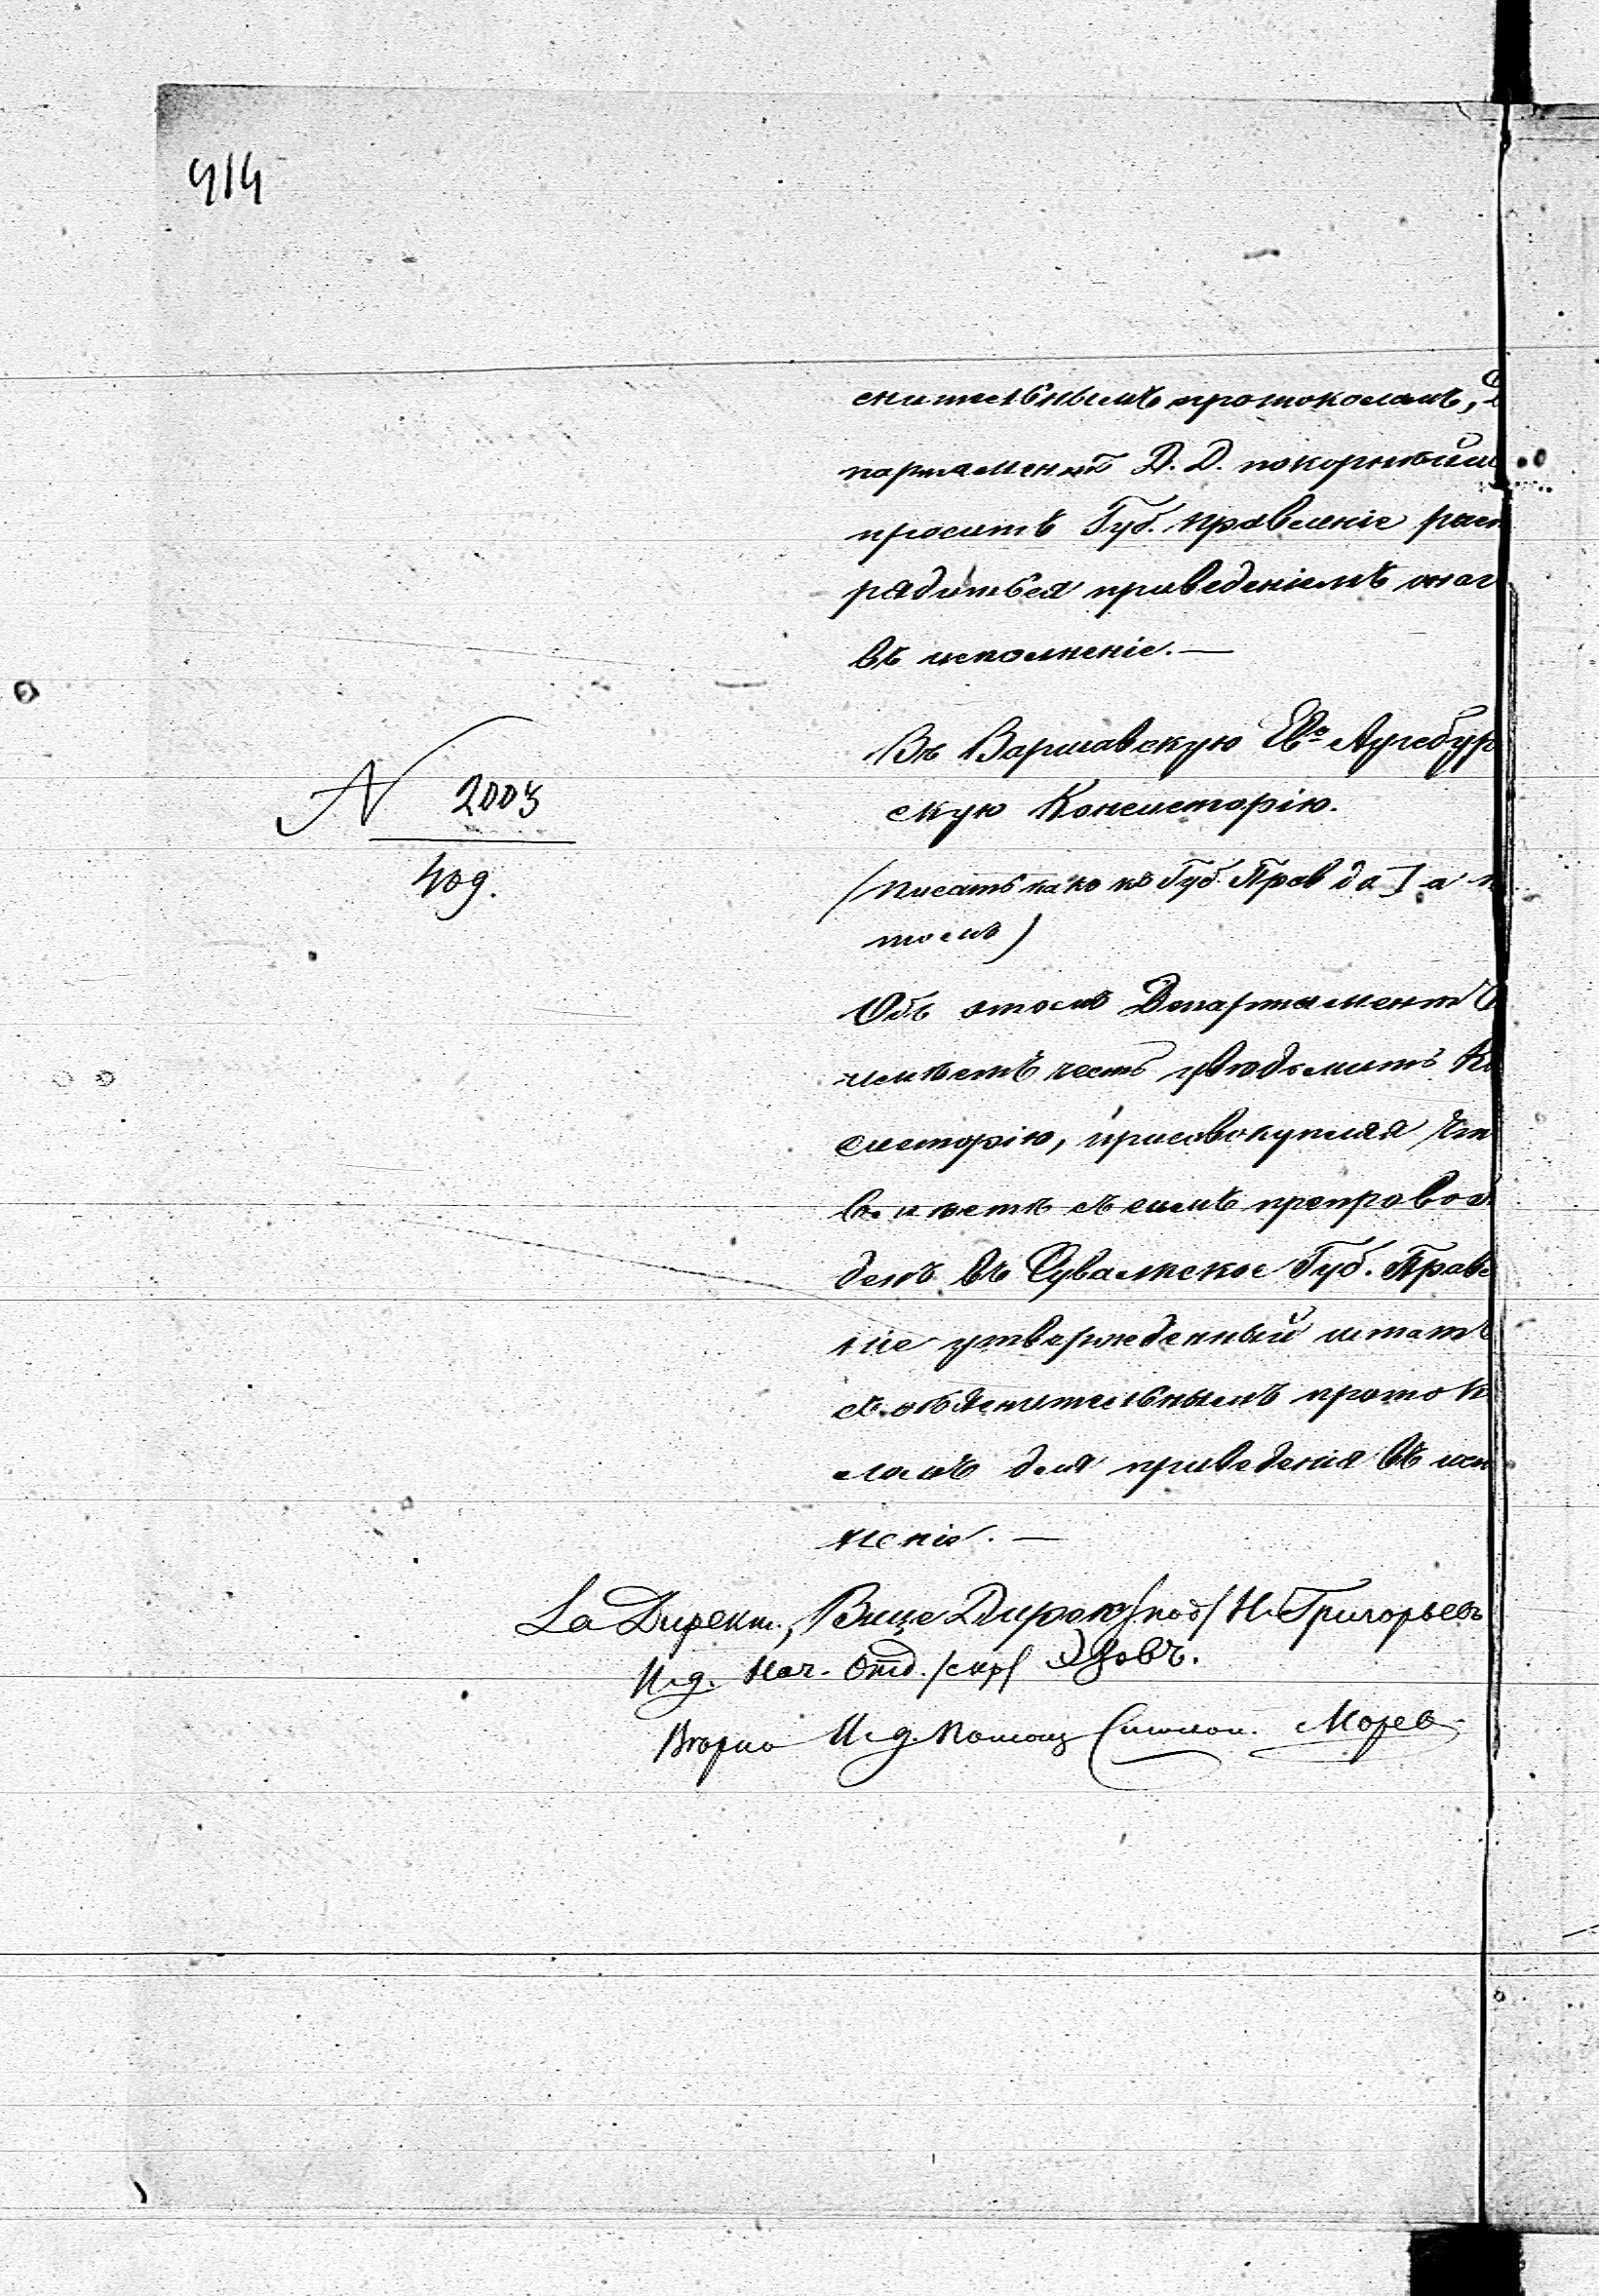 414
снительнымъ протоколомъ, Д
партаментъ Д. Д. покорнѣйш
проситъ Губ. Правленіе расп
рядиться приведеніемъ онаг
въ исполненіе. —
Въ Варшавскую Ев. Аугсбур
скую Консисторію.
N 2003
409.
(писать како къ Губ. Прав до I а п
томъ)
Объ этомъ Департаментъ
имѣетъ честь увѣдомить Ко
систорію, присовокупляя что
вмѣстѣ съ симъ препровож
денъ въ Сувалкское Губ. Правле
ніе утвержденный штатъ
съ объяснительнымъ проток
оломъ для приведенія въ исп
ненія. —
За Директ., Вице Директ /под/ Н. Григорьевъ
И. д. Нач. Отд. /скр/
Вѣрно И. д. Помощ Столон.